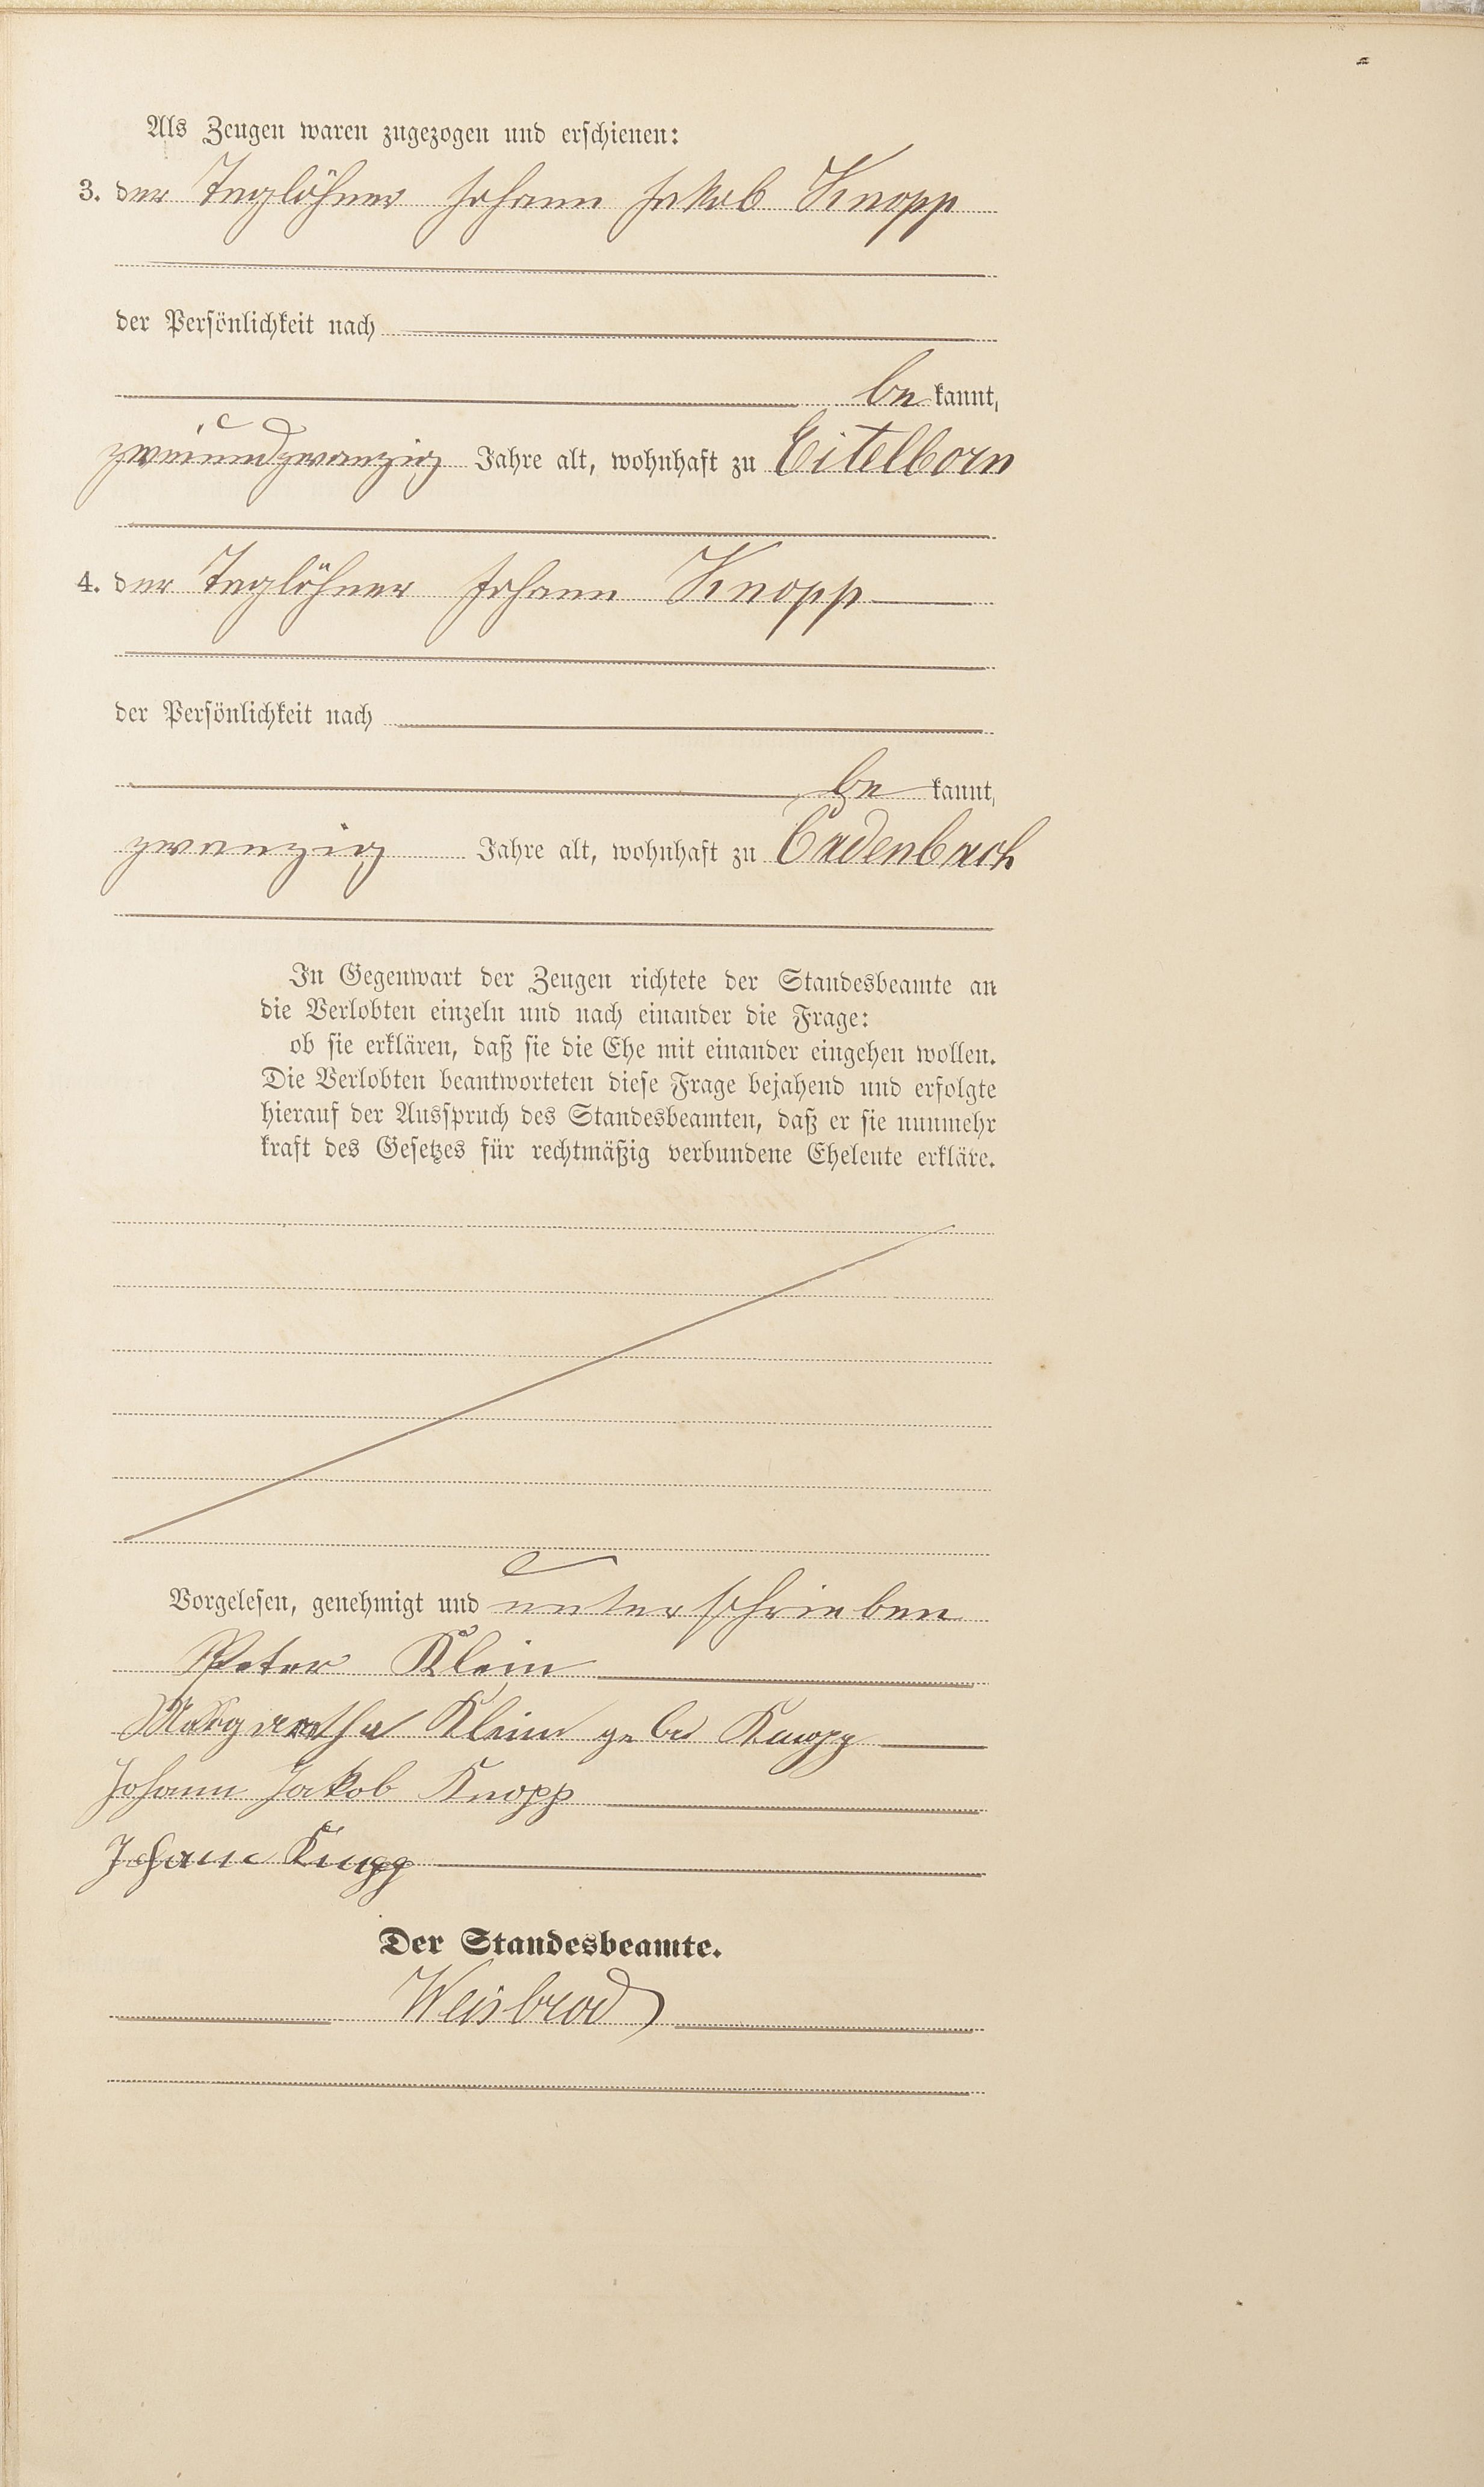 Als Zeugen waren zugezogen und erschienen:
3. der Taglöhner Johann Jakob Knopp
der Persönlichkeit nach
be kannt,
zweiundzwanzig Jahre alt, wohnhaft zu Eitelborn
4. der Taglöhner Johann Knopp
der Persönlichkeit nach
be kannt,
zwanzig Jahre alt, wohnhaft zu Cadenbach
In Gegenwart der Zeugen richtete der Standesbeamte an
die Verlobten einzeln und nach einander die Frage:
ob sie erklären, daß sie die Ehe mit einander eingehen wollen.
Die Verlobten beantworteten diese Frage bejahend und erfolgte
hierauf der Ausspruch des Standesbeamten, daß er sie nunmehr
kraft des Gesetzes für rechtmäßig verbundene Eheleute erkläre.
Vorgelesen, genehmigt und unterschrieben
Peter Klein
Margaretha Klein geb Knopp
Johann Jakob Knopp
Johann Knopp
Der Standesbeamte.
Weisbrod